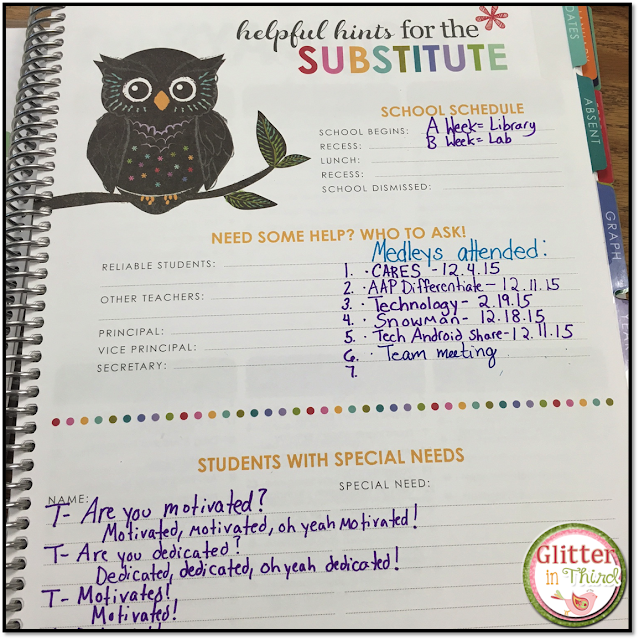 helpful hints for the
SUBSTITUTE
DATES
ABSENT
GRAPH
SCHOOL SCHEDULE
SCHOOL BEGINS: A Week= Library
RECESS: B Week= Lab
LUNCH:
RECESS:
SCHOOL DISMISSED:
NEED SOME HELP? WHO TO ASK!
Medleys attended:
RELIABLE STUDENTS: 1. · CARES - 12.4.15
2. · AAP Differentiate - 12.11.15
OTHER TEACHERS: 3. · Technology - 2.19.15
4. · Snowman - 12.18.15
PRINCIPAL: 5. · Tech Android share - 12.11.15
VICE PRINCIPAL: 6. · Team meeting
SECRETARY: 7.
STUDENTS WITH SPECIAL NEEDS
NAME: SPECIAL NEED:
T- Are you motivated?
Motivated, motivated, oh yeah motivated!
T- Are you dedicated?
Dedicated, dedicated, oh yeah dedicated!
T- Motivated!
Motivated!
Glitter
in Third